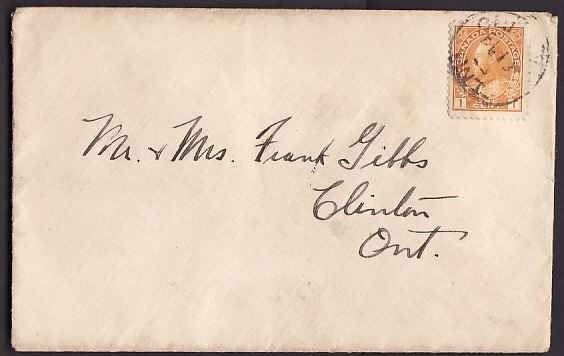 CANADA POSTAGE
1
Mr. & Mrs. Frank Gibbs
Clinton
Ont.